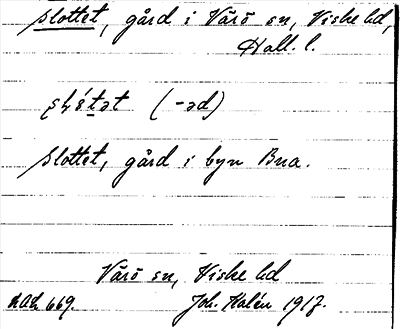 Slottet, gård i Värö sn, Viske hd,
Hall. l.
(-əd)
Slottet, gård i byn Bua.
Värö sn, Viske hd
669. Joh. Kalén 1917.